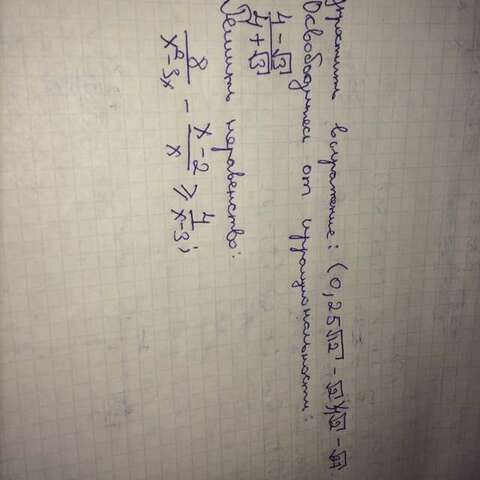 Упростить выражение: (0,25√12 - √2)√2 -
Освободитесь от иррациональности:
4-√3 / 4+√3
Решить неравенство:
8 / x²-3x - x-2 / x ≥ 4 / x-3;